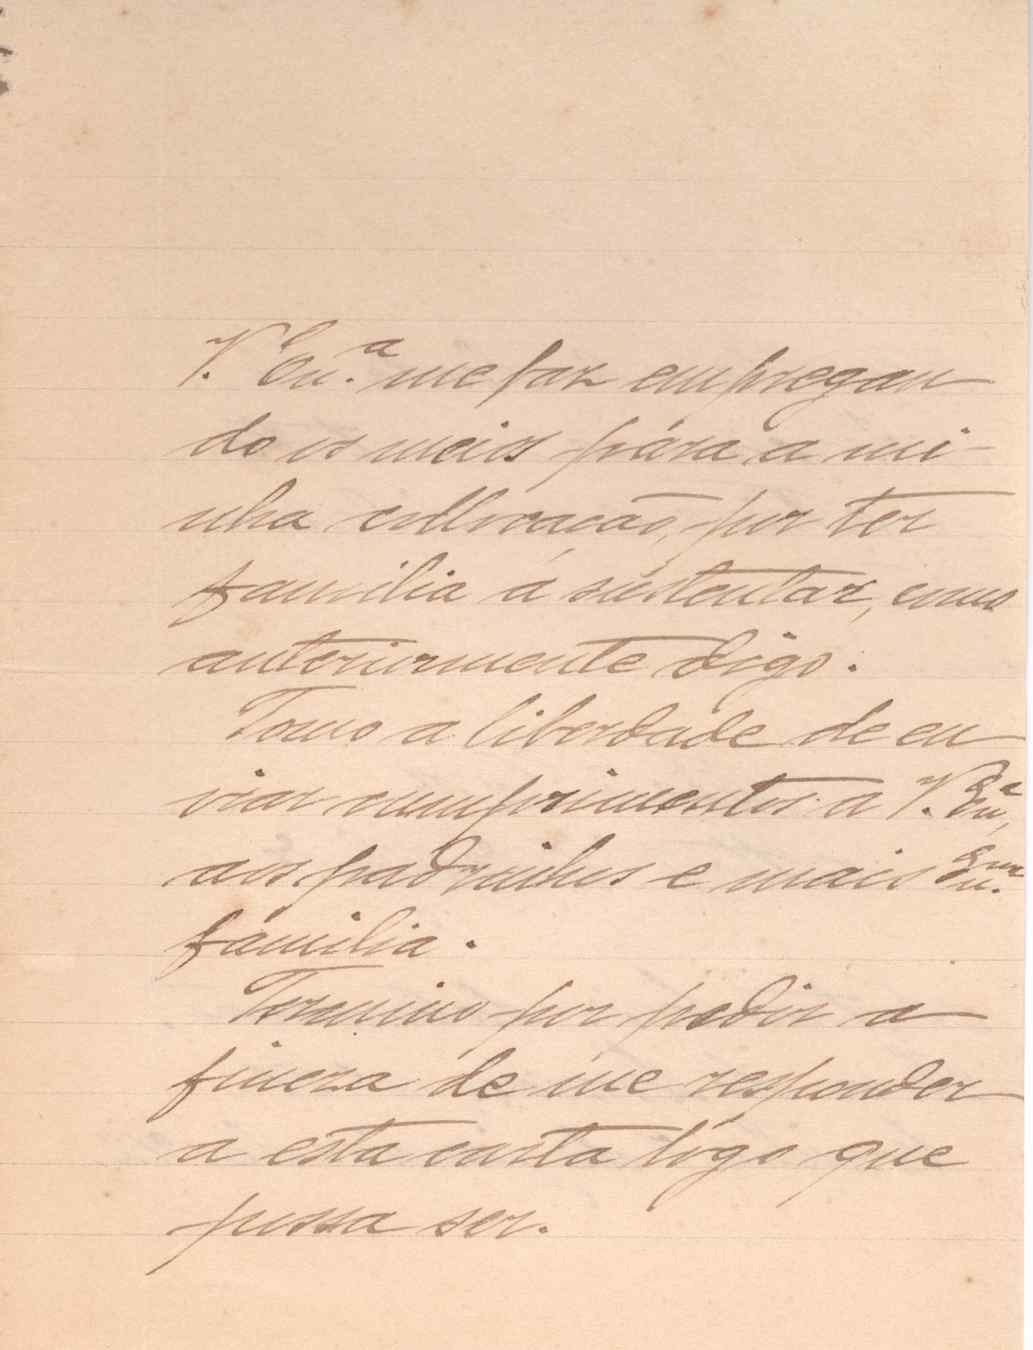 V. Ex.ª me faz empregan
do os meios pára a mi-
nha collocação, por ter
familia á sustentar, como
anteriormente digo.
Tomo a liberdade de en
viar cumprimentos a V. Exª,
aos padrinhos e mais Exm.ª
familia.
Termino por pedir a
fineza de me responder
a esta carta lógo que
possa ser.